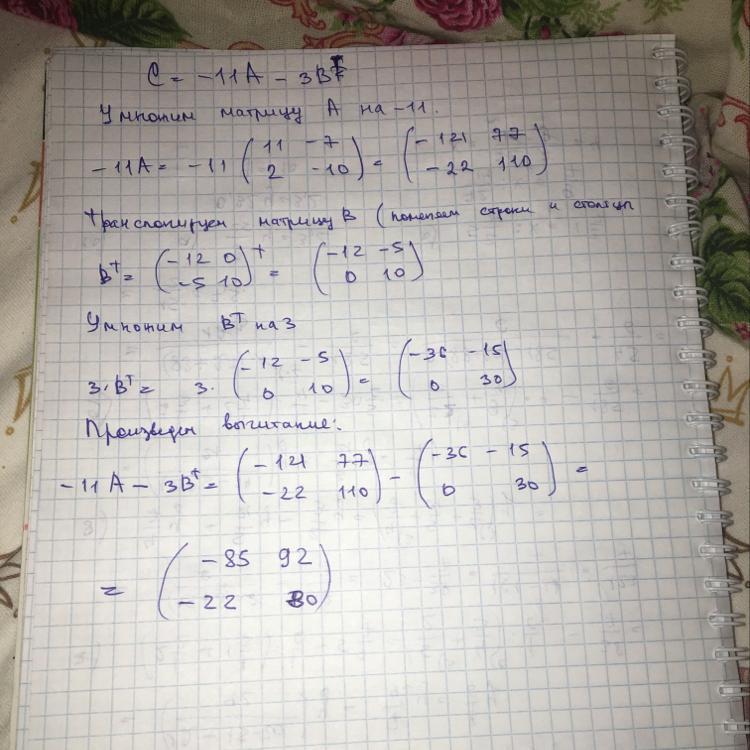 C = -11A - 3Bᵀ
Умножим матрицу A на -11.
-11A = -11 ( 11 -7 ; 2 -10 ) = ( -121 77 ; -22 110 )
транспонируем матрицу B ( поменяем строки и столбцы
Bᵀ = ( -12 0 ; -5 10 )ᵀ = ( -12 -5 ; 0 10 )
Умножим Bᵀ на 3
3·Bᵀ = 3· ( -12 -5 ; 0 10 ) = ( -36 -15 ; 0 30 )
Произведем вычитание:
-11A - 3Bᵀ = ( -121 77 ; -22 110 ) - ( -36 -15 ; 0 30 ) =
= ( -85 92 ; -22 80 )